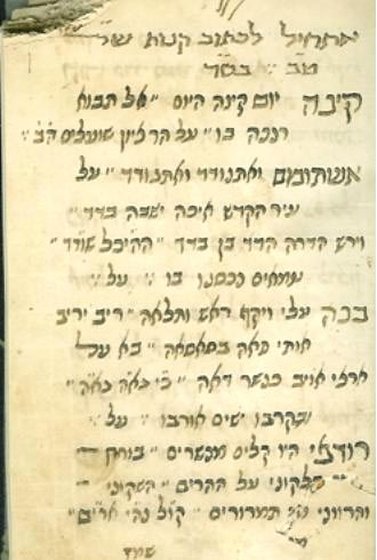 אתחיל לכתוב קנות ש
טב בסד
קינה יום קינה היום אל תבוא
רננה בו על הר ציון שועלים הב
אשתומם ואתנודד ואתבודד על
עיר הקדש איכה ישבה בדד
וירש הדרה הדד בן בדד ההיכל שודד
טמאים נכנסו בו על
בכה עלי ויקף ראש ותלאה ריב יריב
אותי סאה בסאסאה בא על
ארצי אויב כנשר דאה כי גאה גאה
ובקרבו ישים ארבו על
רודפי היו קלים מנשרים
דלקוני על ההרים השקוני
והרווני תמרורים קול נהי ארים